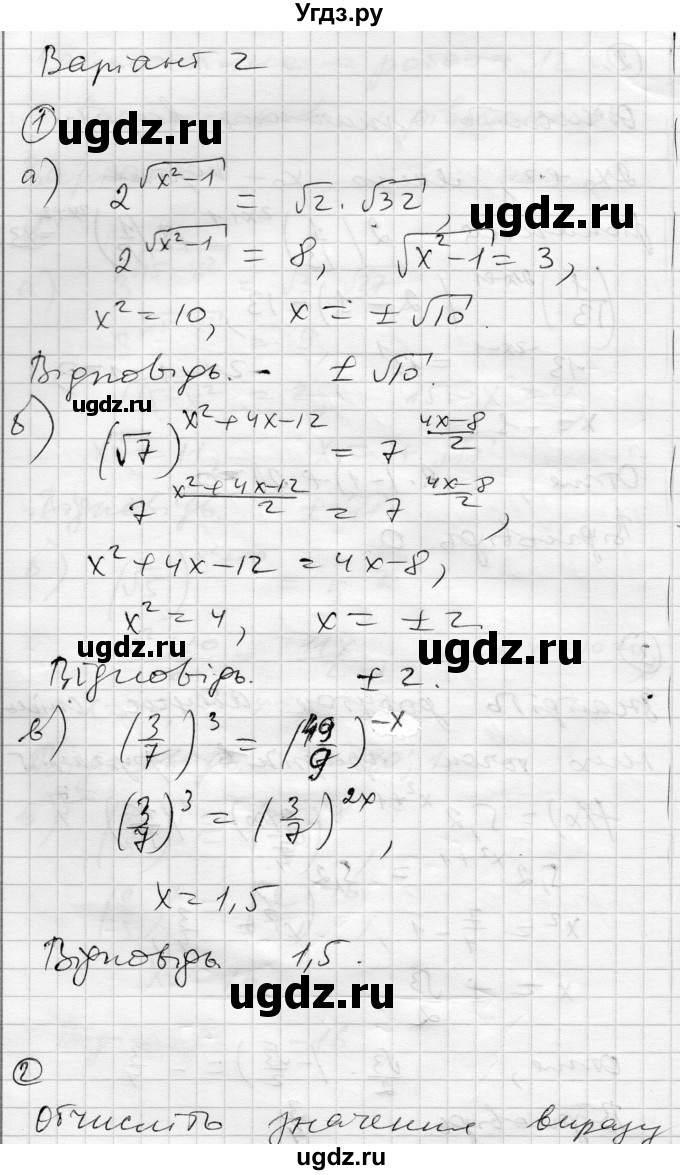 Угдз.ру
Варіант 2
1
ugdz.ru
а) 2^{√(x²-1)} = √2 · √32,
ugdz.ru
2^{√(x²-1)} = 8, √(x²-1) = 3,
x² = 10, x = ±√10.
Відповідь. - ±√10.
ugdz.ru
б) (√7)^{x²+4x-12} = 7^{(4x-8)/2}
7^{(x²+4x-12)/2} = 7^{(4x-8)/2},
x²+4x-12 = 4x-8,
x² = 4, x = ±2
ugdz.ru
ugdz.ru
Відповідь. ±2.
в) (3/7)³ = (49/9)^{-x}
(3/7)³ = (3/7)^{2x},
x = 1,5
Відповідь 1,5.
ugdz.ru
2
Отчисліть значення виразу
ugdz.ru